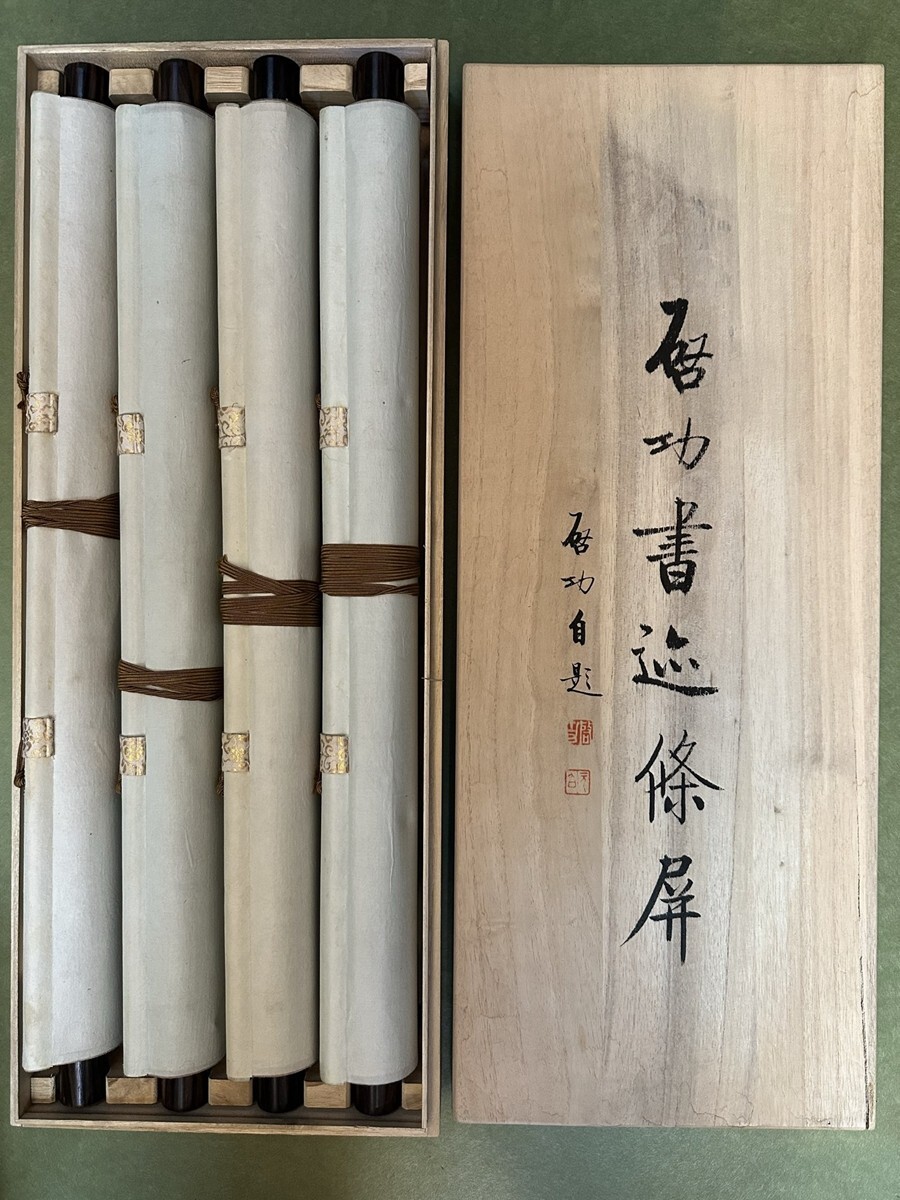 啓功書迹條屏
啓功自題